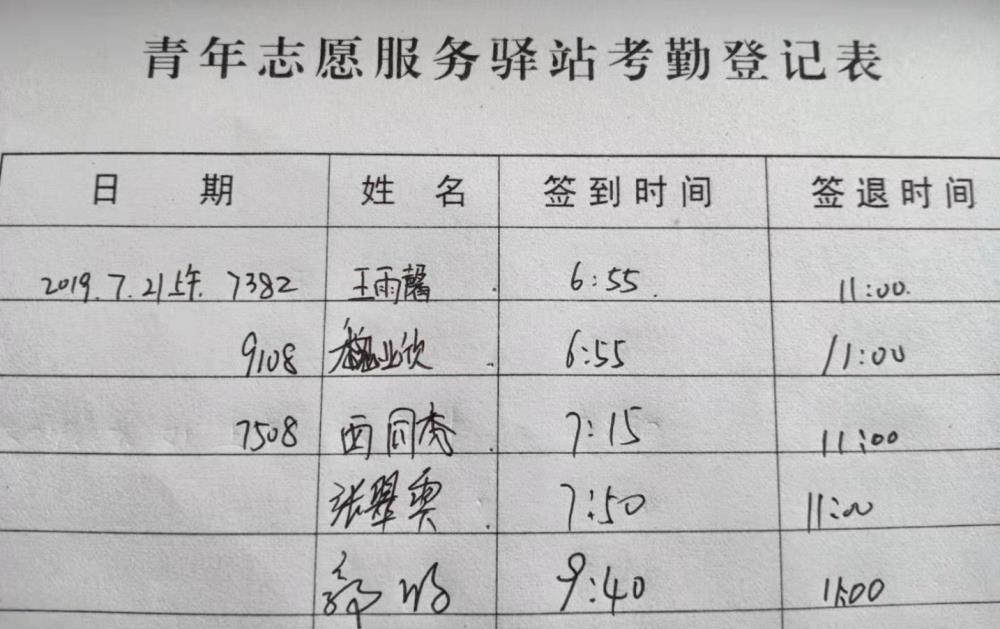 青年志愿服务驿站考勤登记表
日 期 姓 名 签到时间 签退时间
2019.7.21上午. 7382 王雨馨 6:55 11:00
9108 业欣 6:55 11:00
7508 西同秀 7:15 11:00
张翠 7:50 11:00
9:40 11:00